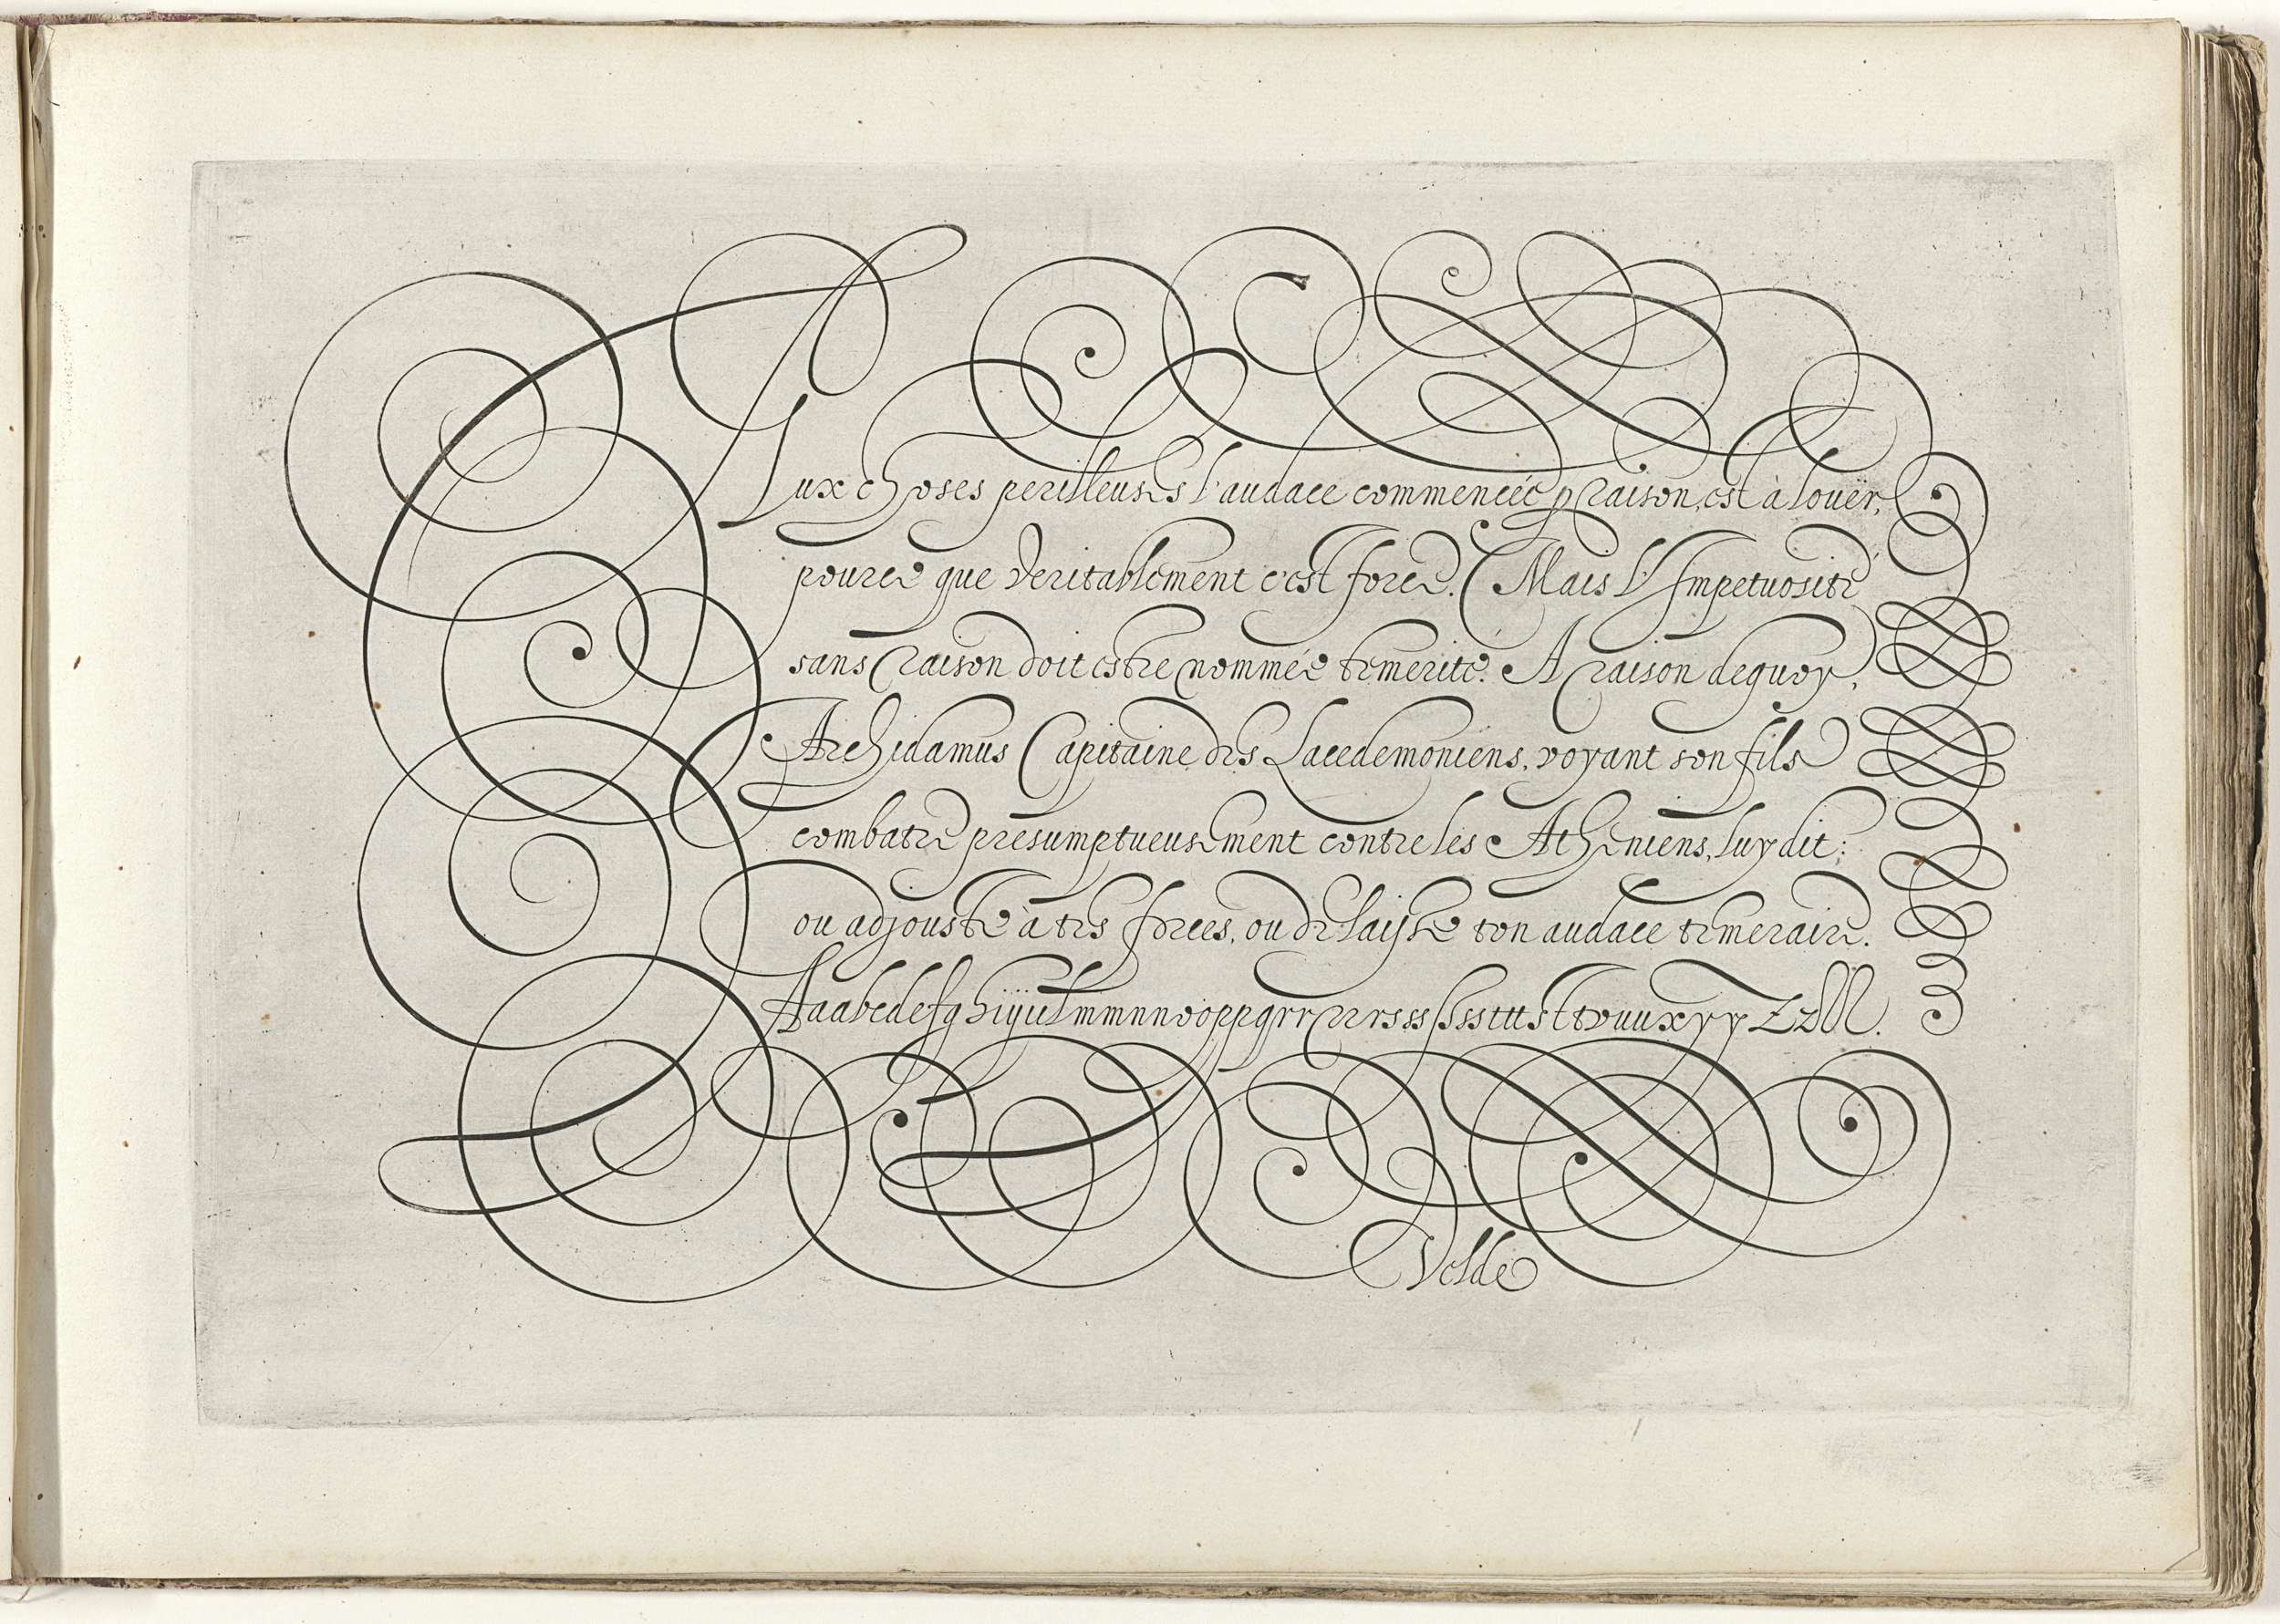 Aux choses perilleuses l'audace commencée p raison, est à louër,
pource que veritablement c'est force. Mais l'Impetuosité
sans raison doit estre nommée temerité. A raison dequoy,
Archidamus Capitaine des Lacedemoniens, voyant son fils
combatre presumptueusement contre les Atheniens, luy dit:
ou adjouste à tes forces, ou delaisse ton audace temeraire.
AaabcdefghiijulmmnnvoppqrrrrrsssssssttststvuuxyyZz
Velde